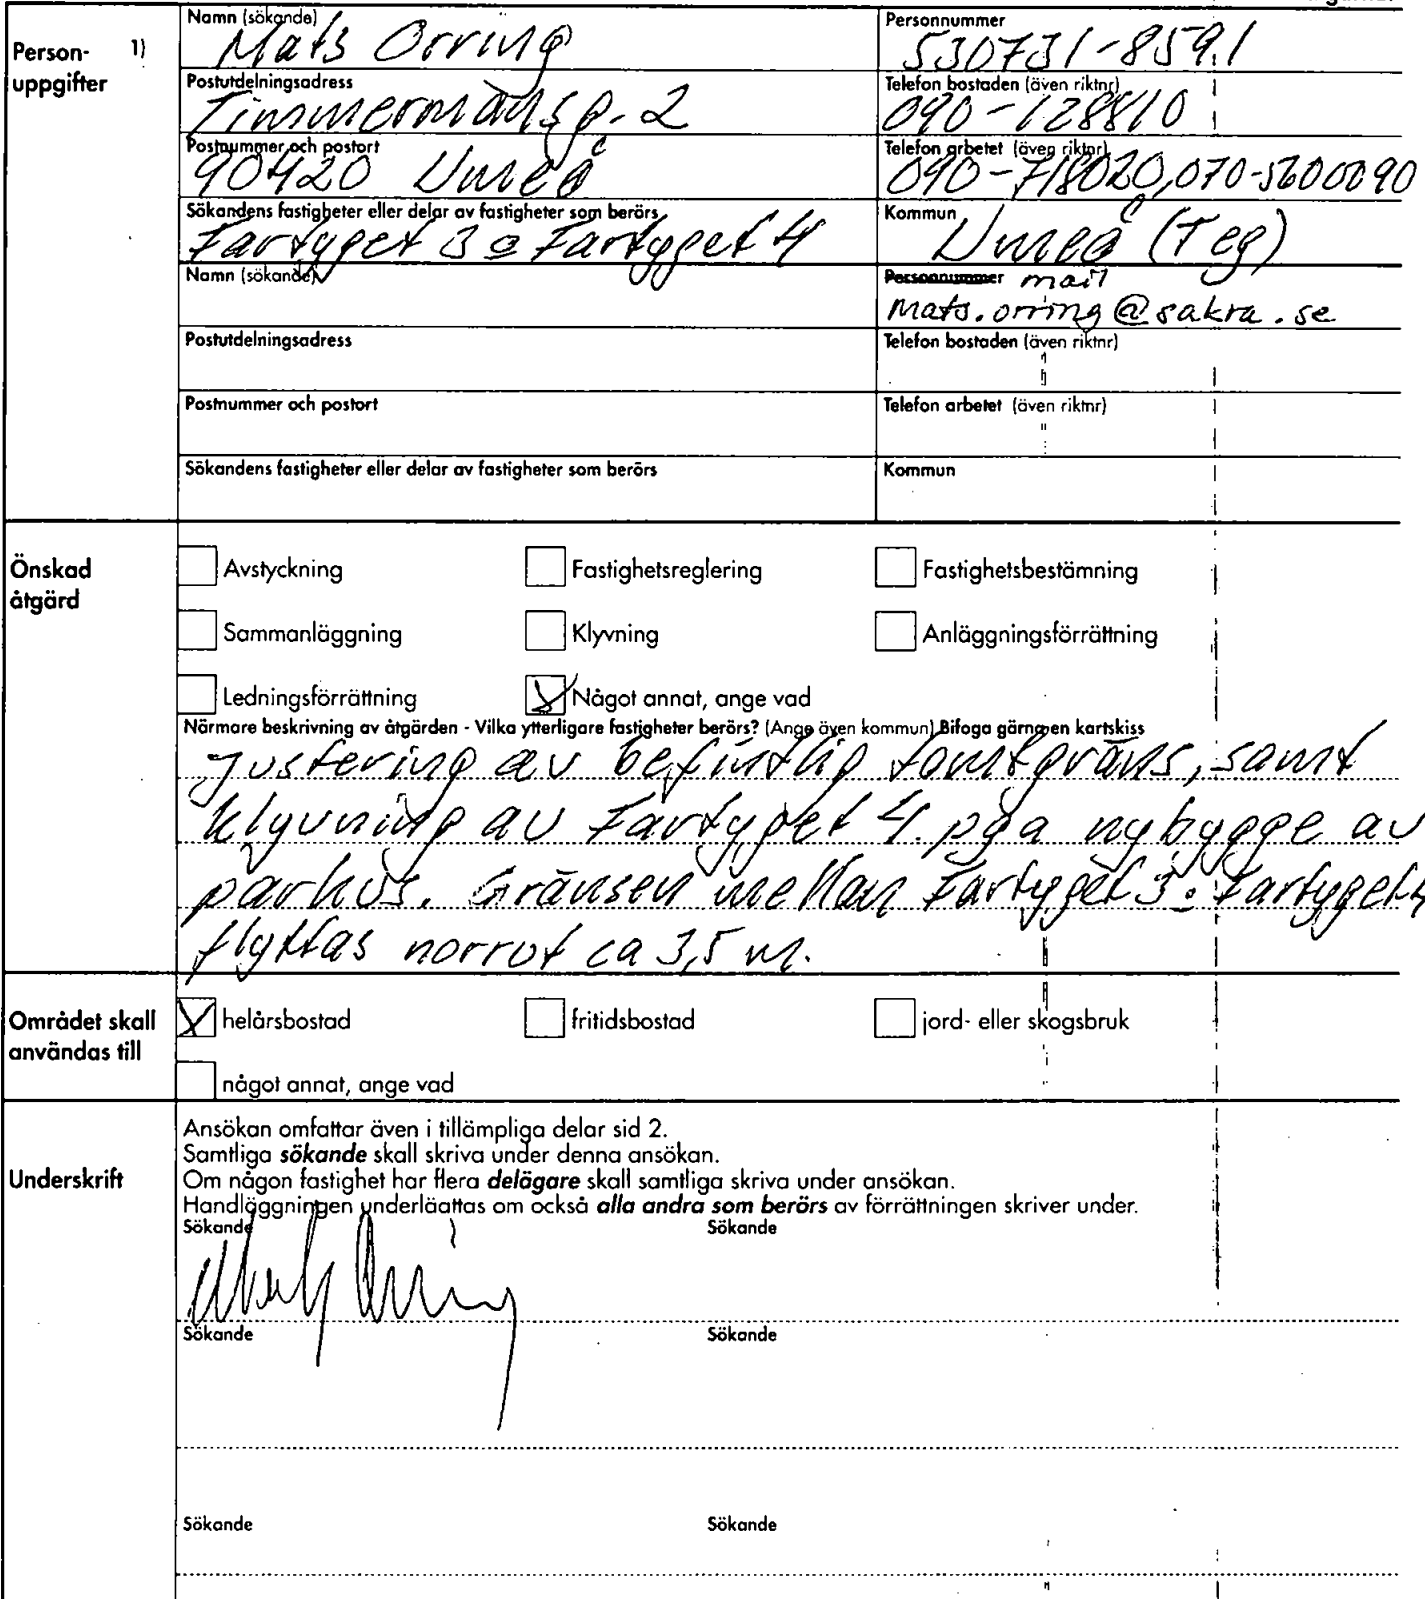 Person- 1)
uppgifter
Namn (sökande)
Mats Orring
Personnummer
530731-8591
Postutdelningsadress
Timmermansg. 2
Telefon bostaden (även riktnr)
090-128810
Postnummer och postort
90420 Umeå
Telefon arbetet (även riktnr)
090-718020, 070-5600090
Sökandens fastigheter eller delar av fastigheter som berörs
Fartyget 3 o Fartyget 4
Kommun
Umeå (Teg)
Namn (sökande)
Personnummer mail
Mats.orring@sakra.se
Postutdelningsadress
Telefon bostaden (även riktnr)
Postnummer och postort
Telefon arbetet (även riktnr)
Sökandens fastigheter eller delar av fastigheter som berörs
Kommun
Önskad
åtgärd
Avstyckning
Fastighetsreglering
Fastighetsbestämning
Sammanläggning
Klyvning
Anläggningsförrättning
Ledningsförrättning
Något annat, ange vad
Närmare beskrivning av åtgärden - Vilka ytterligare fastigheter berörs? (Ange även kommun) Bifoga gärna en kartskiss
Justering av befintlig tomtgräns, samt
klyvning av Fartyget 4. pga nybygge av
parhus. Gränsen mellan Fartyget 3 o Fartyget 4
flyttas norrut ca 3,5 m.
Området skall
användas till
helårsbostad
fritidsbostad
jord- eller skogsbruk
något annat, ange vad
Underskrift
Ansökan omfattar även i tillämpliga delar sid 2.
Samtliga sökande skall skriva under denna ansökan.
Om någon fastighet har flera delägare skall samtliga skriva under ansökan.
Handläggningen underläattas om också alla andra som berörs av förrättningen skriver under.
Sökande
Sökande
Mats Orring
Sökande
Sökande
Sökande
Sökande